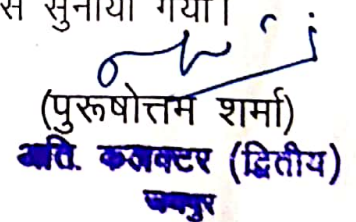 से सुनाया गया।
(पुरूषोत्तम शर्मा)
अति. कलक्टर (द्वितीय)
जयपुर